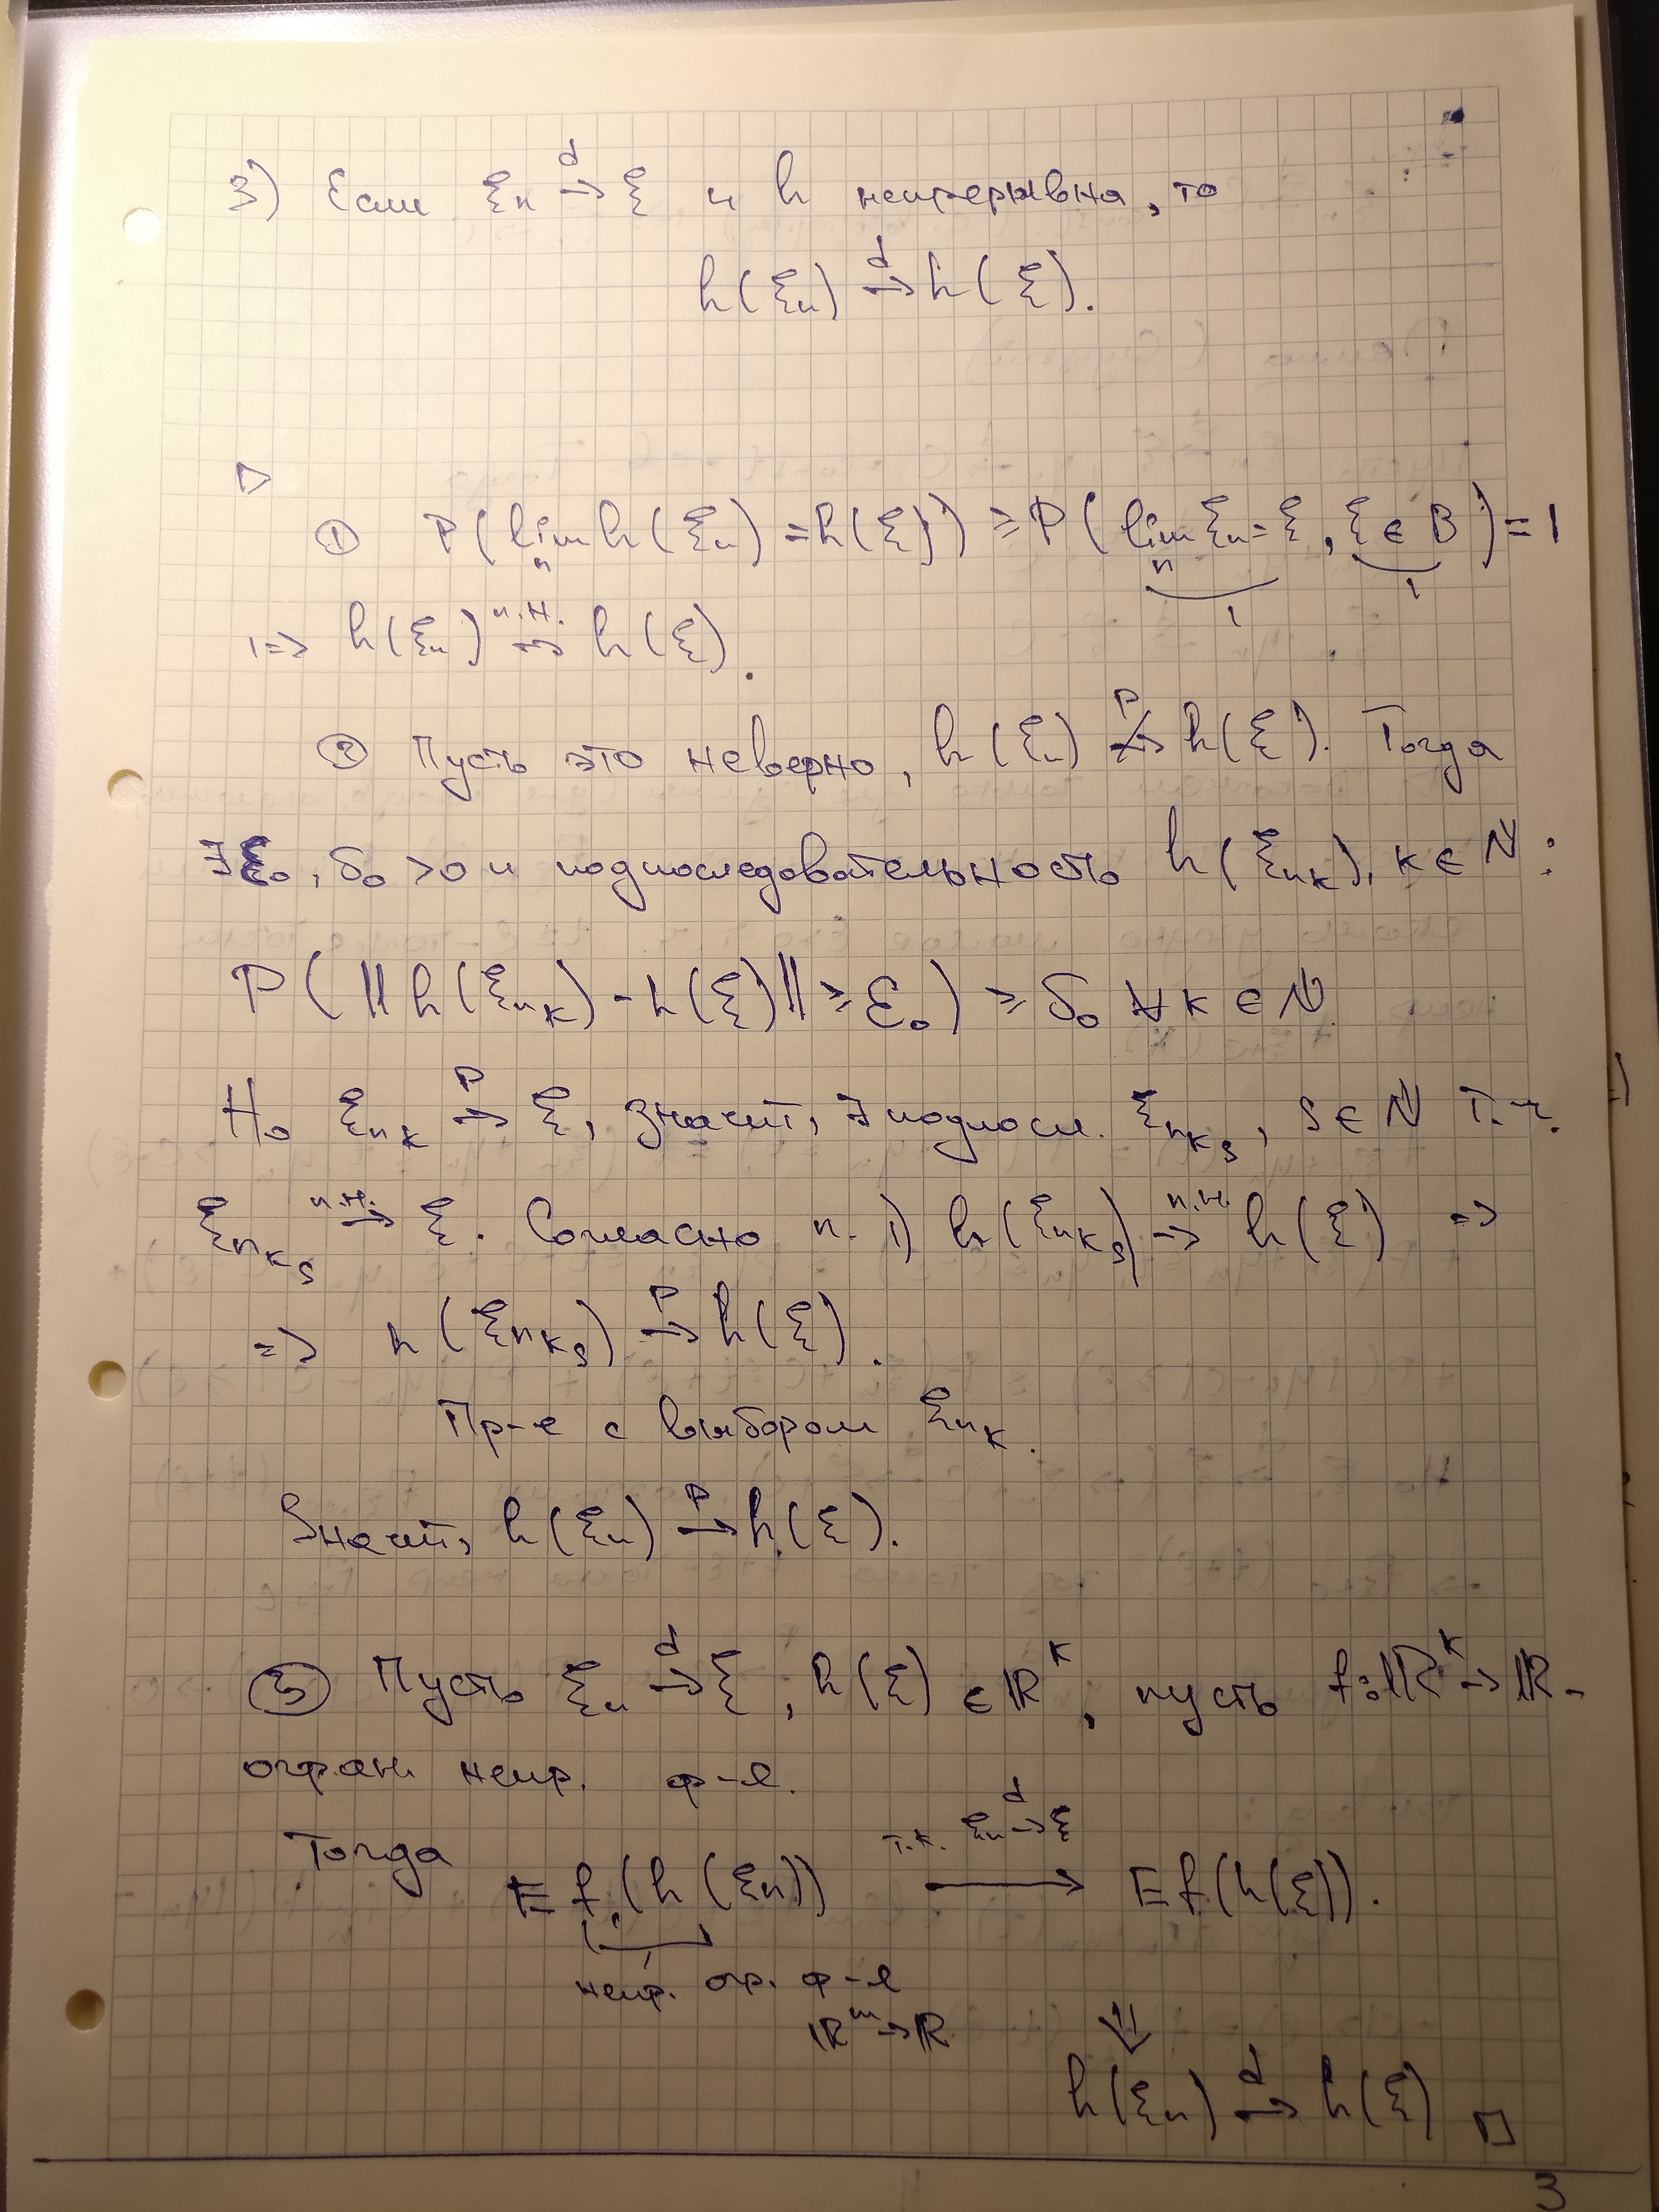 3) Если ξₙ →ᵈ ξ и h непрерывна, то
h(ξₙ) →ᵈ h(ξ).
▷
① P(lim_n h(ξₙ) = h(ξ)) ≥ P(lim_n ξₙ = ξ, ξ ∈ B) = 1
1 1
⇒ h(ξₙ) →ⁿ·ᴴ· h(ξ).
② Пусть это неверно, h(ξₙ) ↛ᴾ h(ξ). Тогда
∃ ε₀, δ₀ > 0 и подпоследовательность h(ξ_{n_k}), k ∈ ℕ:
P(‖h(ξ_{n_k}) - h(ξ)‖ ≥ ε₀) ≥ δ₀ ∀k ∈ ℕ
Но ξ_{n_k} →ᴾ ξ, значит, ∃ подпосл. ξ_{n_{k_s}}, s ∈ ℕ т.ч.
ξ_{n_{k_s}} →ⁿ·ᴴ· ξ. Согласно п. 1) h(ξ_{n_{k_s}}) →ⁿ·ᴴ· h(ξ) ⇒
⇒ h(ξ_{n_{k_s}}) →ᴾ h(ξ).
Пр-е с выбором ξ_{n_k}.
Значит, h(ξₙ) →ᴾ h(ξ).
③ Пусть ξₙ →ᵈ ξ, h(ξ) ∈ ℝᵏ, пусть f: ℝᵏ → ℝ -
огран. непр. ф-я.
Тогда E f(h(ξₙ)) т.к. ξₙ →ᵈ ξ ⟶ E f(h(ξ)).
непр. огр. ф-я
ℝᵐ → ℝ
⇓
h(ξₙ) →ᵈ h(ξ) □
3